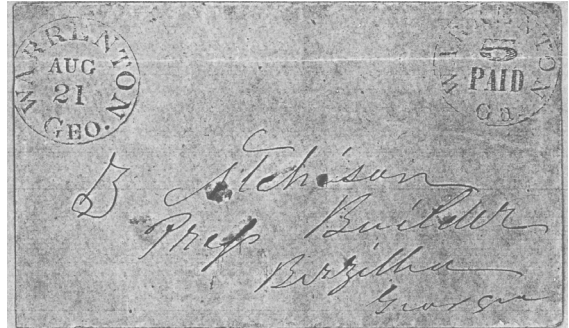 WARRENTON
AUG
21
GEO.
WARRENTON
5
PAID
Ga.
Atchison
Builder
Barzilha
Georgia